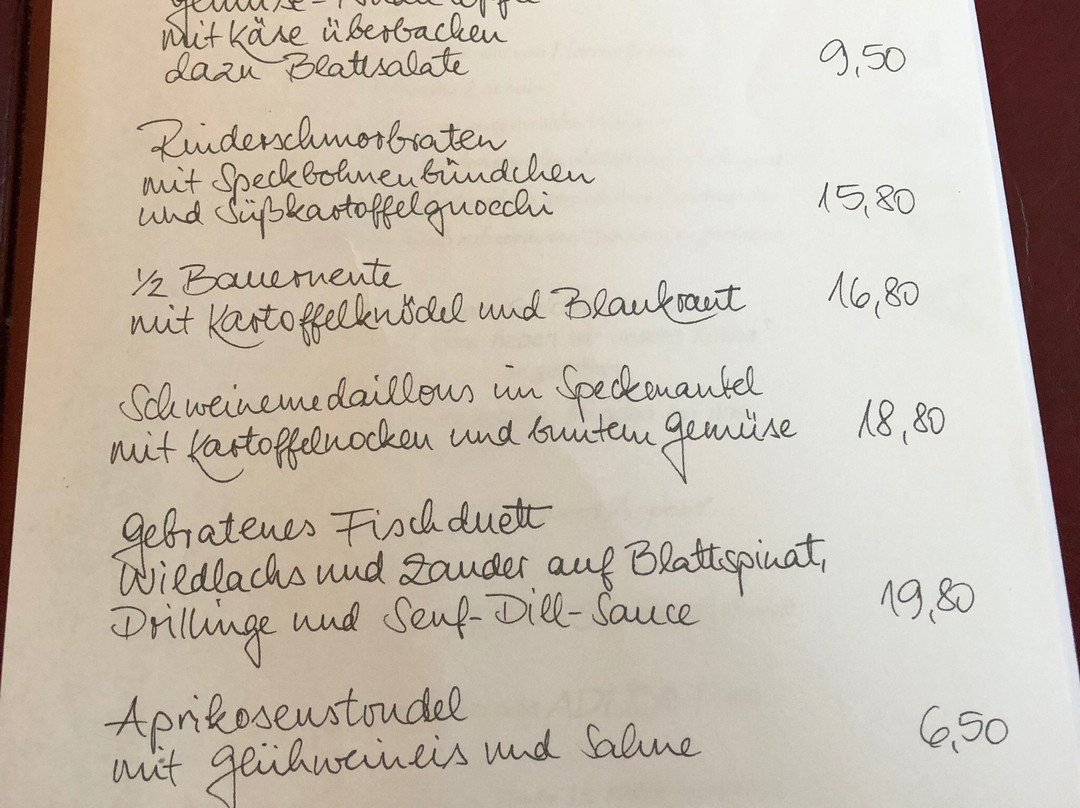 mit Käse überbacken
dazu Blattsalate 9,50
Rinderschmorbraten
mit Speckbohnenbündchen
und Süßkartoffelgnocchi 15,80
1/2 Bauernente
mit Kartoffelknödel und Blaukraut 16,80
Schweinemedaillons im Speckmantel
mit Kartoffelnocken und buntem Gemüse 18,80
Gebratenes Fischduett
Wildlachs und Zander auf Blattspinat,
Drillinge und Senf-Dill-Sauce 19,80
Aprikosenstrudel
mit Glühweineis und Sahne 6,50